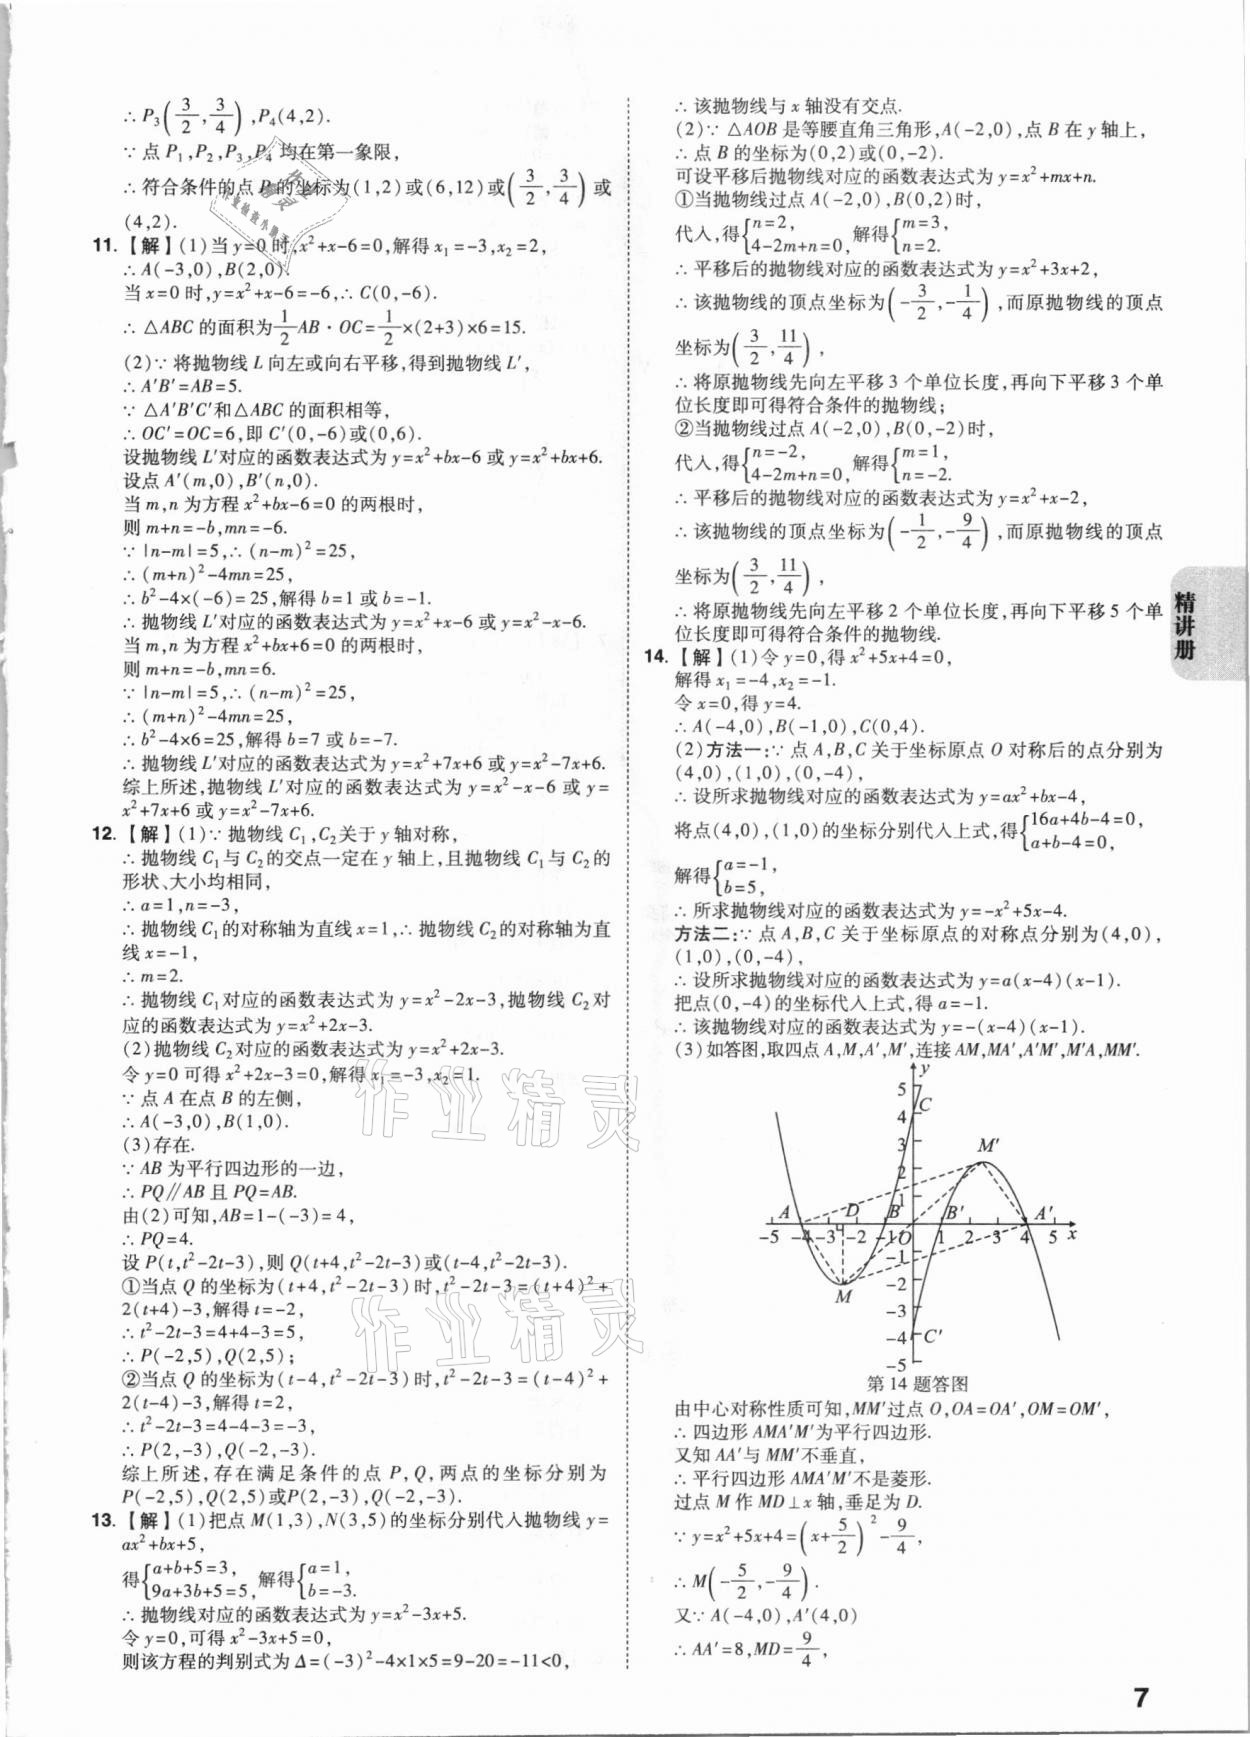 ∴P₃(3/2,3/4),P₄(4,2).
∵点P₁,P₂,P₃,P₄均在第一象限,
∴符合条件的点P的坐标为(1,2)或(6,12)或(3/2,3/4)或
(4,2).
11.【解】(1)当y=0时,x²+x-6=0,解得x₁=-3,x₂=2,
∴A(-3,0),B(2,0).
当x=0时,y=x²+x-6=-6,∴C(0,-6).
∴△ABC的面积为1/2AB·OC=1/2×(2+3)×6=15.
(2)∵将抛物线L向左或向右平移,得到抛物线L′,
∴A′B′=AB=5.
∵△A′B′C′和△ABC的面积相等,
∴OC′=OC=6,即C′(0,-6)或(0,6).
设抛物线L′对应的函数表达式为y=x²+bx-6或y=x²+bx+6.
设点A′(m,0),B′(n,0).
当m,n为方程x²+bx-6=0的两根时,
则m+n=-b,mn=-6.
∵|n-m|=5,∴(n-m)²=25,
∴(m+n)²-4mn=25,
∴b²-4×(-6)=25,解得b=1或b=-1.
∴抛物线L′对应的函数表达式为y=x²+x-6或y=x²-x-6.
当m,n为方程x²+bx+6=0的两根时,
则m+n=-b,mn=6.
∵|n-m|=5,∴(n-m)²=25,
∴(m+n)²-4mn=25,
∴b²-4×6=25,解得b=7或b=-7.
∴抛物线L′对应的函数表达式为y=x²+7x+6或y=x²-7x+6.
综上所述,抛物线L′对应的函数表达式为y=x²-x-6或y=
x²+7x+6或y=x²-7x+6.
12.【解】(1)∵抛物线C₁,C₂关于y轴对称,
∴抛物线C₁与C₂的交点一定在y轴上,且抛物线C₁与C₂的
形状、大小均相同,
∴a=1,n=-3,
∴抛物线C₁的对称轴为直线x=1,∴抛物线C₂的对称轴为直
线x=-1,
∴m=2.
∴抛物线C₁对应的函数表达式为y=x²-2x-3,抛物线C₂对
应的函数表达式为y=x²+2x-3.
(2)抛物线C₂对应的函数表达式为y=x²+2x-3.
令y=0可得x²+2x-3=0,解得x₁=-3,x₂=1.
∵点A在点B的左侧,
∴A(-3,0),B(1,0).
(3)存在.
∵AB为平行四边形的一边,
∴PQ∥AB且PQ=AB.
由(2)可知,AB=1-(-3)=4,
∴PQ=4.
设P(t,t²-2t-3),则Q(t+4,t²-2t-3)或(t-4,t²-2t-3).
①当点Q的坐标为(t+4,t²-2t-3)时,t²-2t-3=(t+4)²+
2(t+4)-3,解得t=-2,
∴t²-2t-3=4+4-3=5,
∴P(-2,5),Q(2,5);
②当点Q的坐标为(t-4,t²-2t-3)时,t²-2t-3=(t-4)²+
2(t-4)-3,解得t=2,
∴t²-2t-3=4-4-3=-3,
∴P(2,-3),Q(-2,-3).
综上所述,存在满足条件的点P,Q,两点的坐标分别为
P(-2,5),Q(2,5)或P(2,-3),Q(-2,-3).
13.【解】(1)把点M(1,3),N(3,5)的坐标分别代入抛物线y=
ax²+bx+5,
得{a+b+5=3, 9a+3b+5=5, 解得{a=1, b=-3.
∴抛物线对应的函数表达式为y=x²-3x+5.
令y=0,可得x²-3x+5=0,
则该方程的判别式为Δ=(-3)²-4×1×5=9-20=-11<0,
∴该抛物线与x轴没有交点.
(2)∵△AOB是等腰直角三角形,A(-2,0),点B在y轴上,
∴点B的坐标为(0,2)或(0,-2).
可设平移后抛物线对应的函数表达式为y=x²+mx+n.
①当抛物线过点A(-2,0),B(0,2)时,
代入,得{n=2, 4-2m+n=0, 解得{m=3, n=2.
∴平移后的抛物线对应的函数表达式为y=x²+3x+2,
∴该抛物线的顶点坐标为(-3/2,-1/4),而原抛物线的顶点
坐标为(3/2,11/4),
∴将原抛物线先向左平移3个单位长度,再向下平移3个单
位长度即可得符合条件的抛物线;
②当抛物线过点A(-2,0),B(0,-2)时,
代入,得{n=-2, 4-2m+n=0, 解得{m=1, n=-2.
∴平移后的抛物线对应的函数表达式为y=x²+x-2,
∴该抛物线的顶点坐标为(-1/2,-9/4),而原抛物线的顶点
坐标为(3/2,11/4),
∴将原抛物线先向左平移2个单位长度,再向下平移5个单
位长度即可得符合条件的抛物线.
14.【解】(1)令y=0,得x²+5x+4=0,
解得x₁=-4,x₂=-1.
令x=0,得y=4.
∴A(-4,0),B(-1,0),C(0,4).
(2)方法一:∵点A,B,C关于坐标原点O对称后的点分别为
(4,0),(1,0),(0,-4),
∴设所求抛物线对应的函数表达式为y=ax²+bx-4,
将点(4,0),(1,0)的坐标分别代入上式,得{16a+4b-4=0, a+b-4=0,
解得{a=-1, b=5,
∴所求抛物线对应的函数表达式为y=-x²+5x-4.
方法二:∵点A,B,C关于坐标原点的对称点分别为(4,0),
(1,0),(0,-4),
∴设所求抛物线对应的函数表达式为y=a(x-4)(x-1).
把点(0,-4)的坐标代入上式,得a=-1.
∴该抛物线对应的函数表达式为y=-(x-4)(x-1).
(3)如答图,取四点A,M,A′,M′,连接AM,MA′,A′M′,M′A,MM′.
y
5
4 C
3 M′
2
1
A D B B′ A′
-5 -4 -3 -2 -1 O 1 2 3 4 5 x
-1
-2
M
-3
-4 C′
-5
第14题答图
由中心对称性质可知,MM′过点O,OA=OA′,OM=OM′,
∴四边形AMA′M′为平行四边形.
又知AA′与MM′不垂直,
∴平行四边形AMA′M′不是菱形.
过点M作MD⊥x轴,垂足为D.
∵y=x²+5x+4=(x+5/2)²-9/4,
∴M(-5/2,-9/4).
又∵A(-4,0),A′(4,0)
∴AA′=8,MD=9/4,
精讲册
7
作业精灵
作业精灵